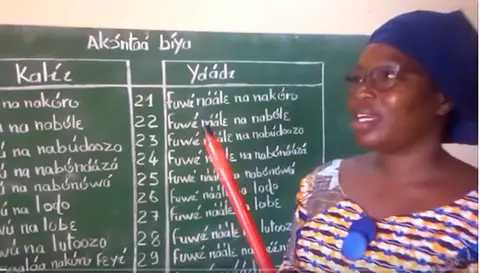 Akɔ́ntaá bíya
Kalɛ́ɛ Yɔ́ádɛ
na nakɔ́ro 21 Fuwɛ́ náálɛ na nakɔ́ro
na nabɔ́lɛ 22 Fuwɛ́ náálɛ na nabɔ́lɛ
na nabúdoozo 23 Fuwɛ́ náálɛ na nabúdoozo
na nabɔ́náázá 24 Fuwɛ́ náálɛ na nabɔ́náázá
na nabɔ́nɔ́wá 25 Fuwɛ́ náálɛ na nabɔ́nɔ́wá
na lɔdo 26 Fuwɛ́ náálɛ na lɔdo
na lɔbɛ 27 Fuwɛ́ náálɛ na lɔbɛ
na lutoozo 28 Fuwɛ́ náálɛ na lutoozo
nakúro féyɛ́ 29 Fuwɛ́ náálɛ na